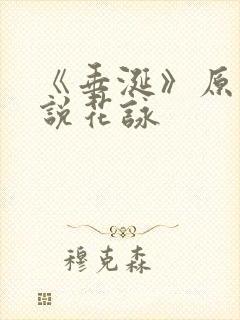 《垂涎》原
說花詠
穆克森